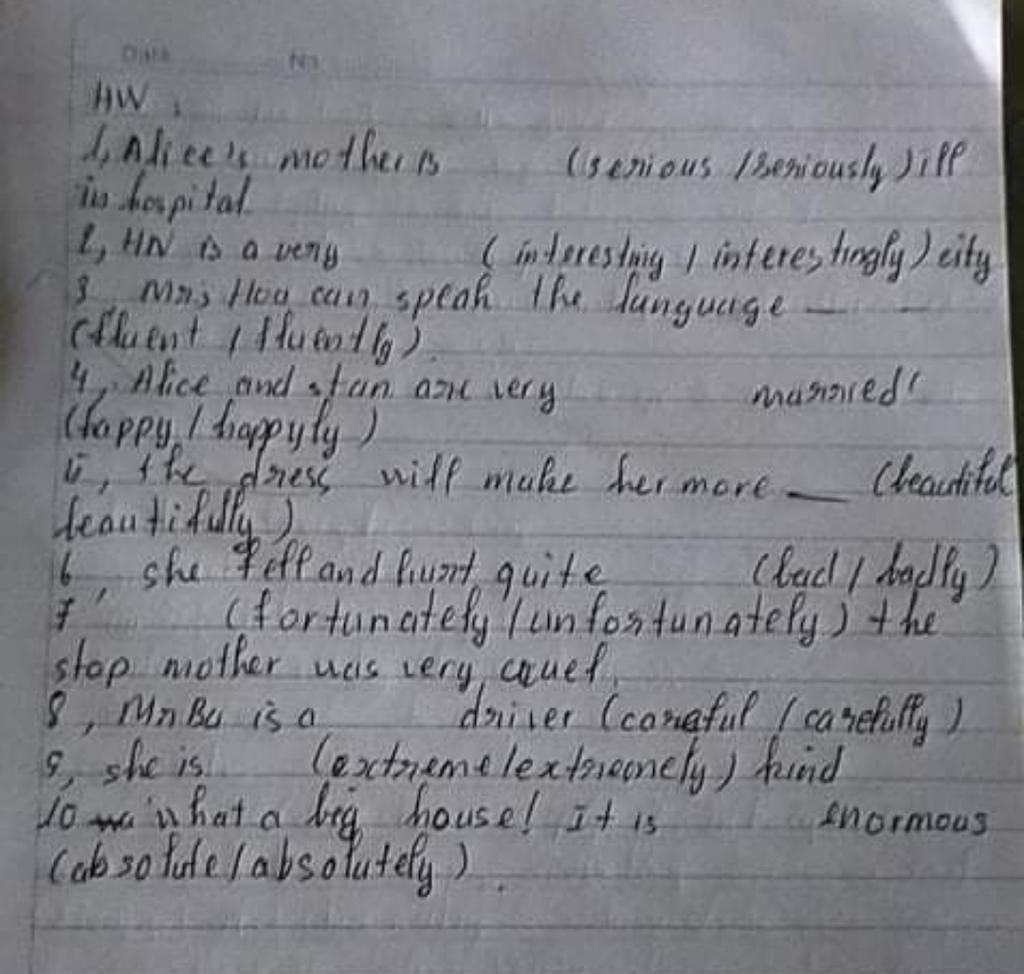 Date No
HW :
1, Alice's mother is (serious / seriously) ill
in hospital
2, HN is a very (interesting / interestingly) city
3 Mrs Hoa can speak the language — —
(fluent / fluently)
4, Alice and stan are very married!
(happy / happyly)
5, the dress will make her more — (beautiful
beautifully)
6, she fell and hurt quite (bad / badly)
7 (fortunately / unfortunately) the
step mother was very cruel.
8, Mr Ba is a driver (careful / carefully)
9, she is (extreme/extremely) kind
10 what a big house! It is enormous
(absolute / absolutely).